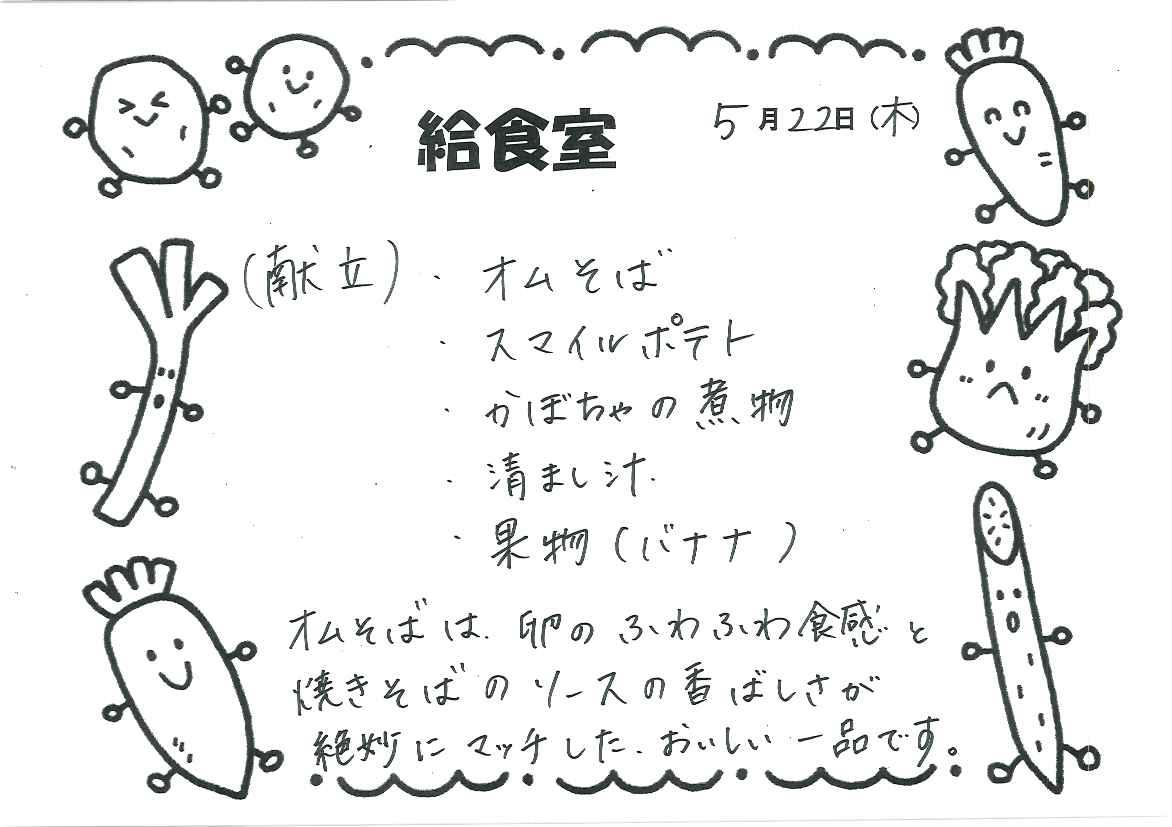 給食室
5月22日(木)
(献立)・オムそば
・スマイルポテト
・かぼちゃの煮物
・清まし汁
・果物(バナナ)
オムそばは、卵のふわふわ食感と
焼きそばのソースの香ばしさが
絶妙にマッチした、おいしい一品です。